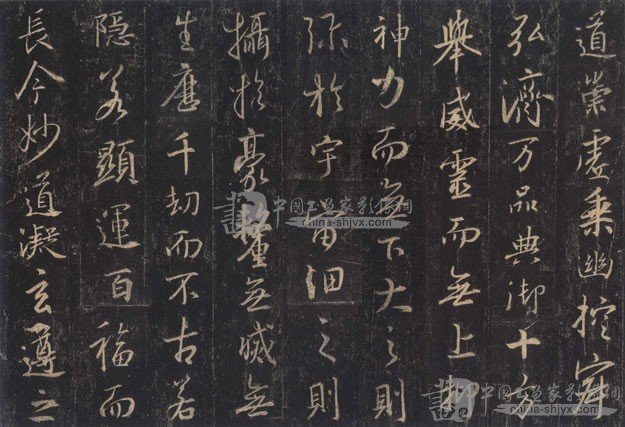 道崇虛乘幽控寂
弘濟万品典御十方
舉威靈而無上抑
神力而無下大之則
弥於宇宙細之則
攝於豪釐無滅無
生歷千劫而不古若
隱若顯運百福而
長今妙道凝玄遵之
china-shjyx.com
china-shjyx.com